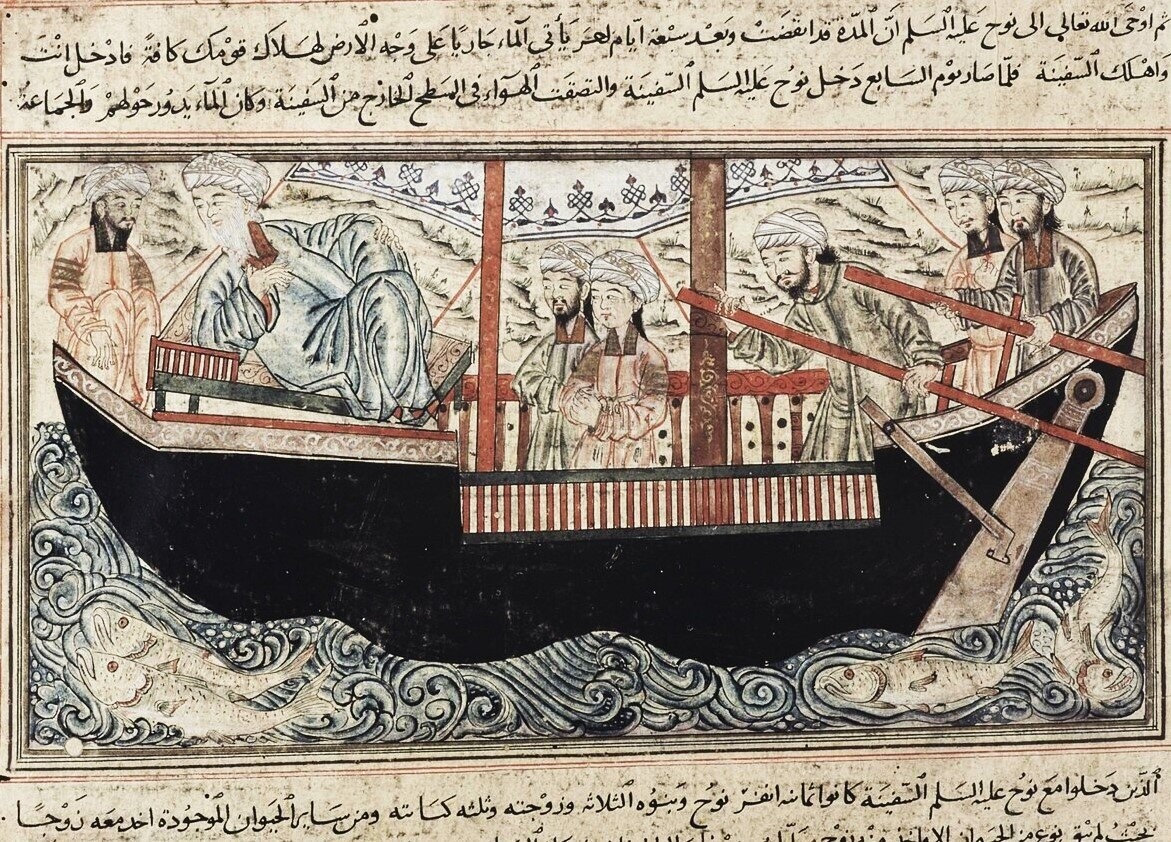 ثم اوحى الله تعالى الى نوح عليه السلم ان المدة قد انقضت وبعد سبعة ايام يأتي الماء جاريا على وجه الارض لهلاك قومك كافة فادخل انت
واهلك السفينة فلما صار يوم السابع دخل نوح عليه السلم السفينة والتصقت الهواء في السطح الخارج من السفينة وكان الماء يدور حولهم والجماعة
الذين دخلوا مع نوح عليه السلم السفينة كانوا ثمانية انفر نوح وبنوه الثلاثة وزوجته وثلثه كناته ومن ساير الحيوان الموجودة اخد معه زوجا
بحيث لم يبق نوع من الحيوان الا